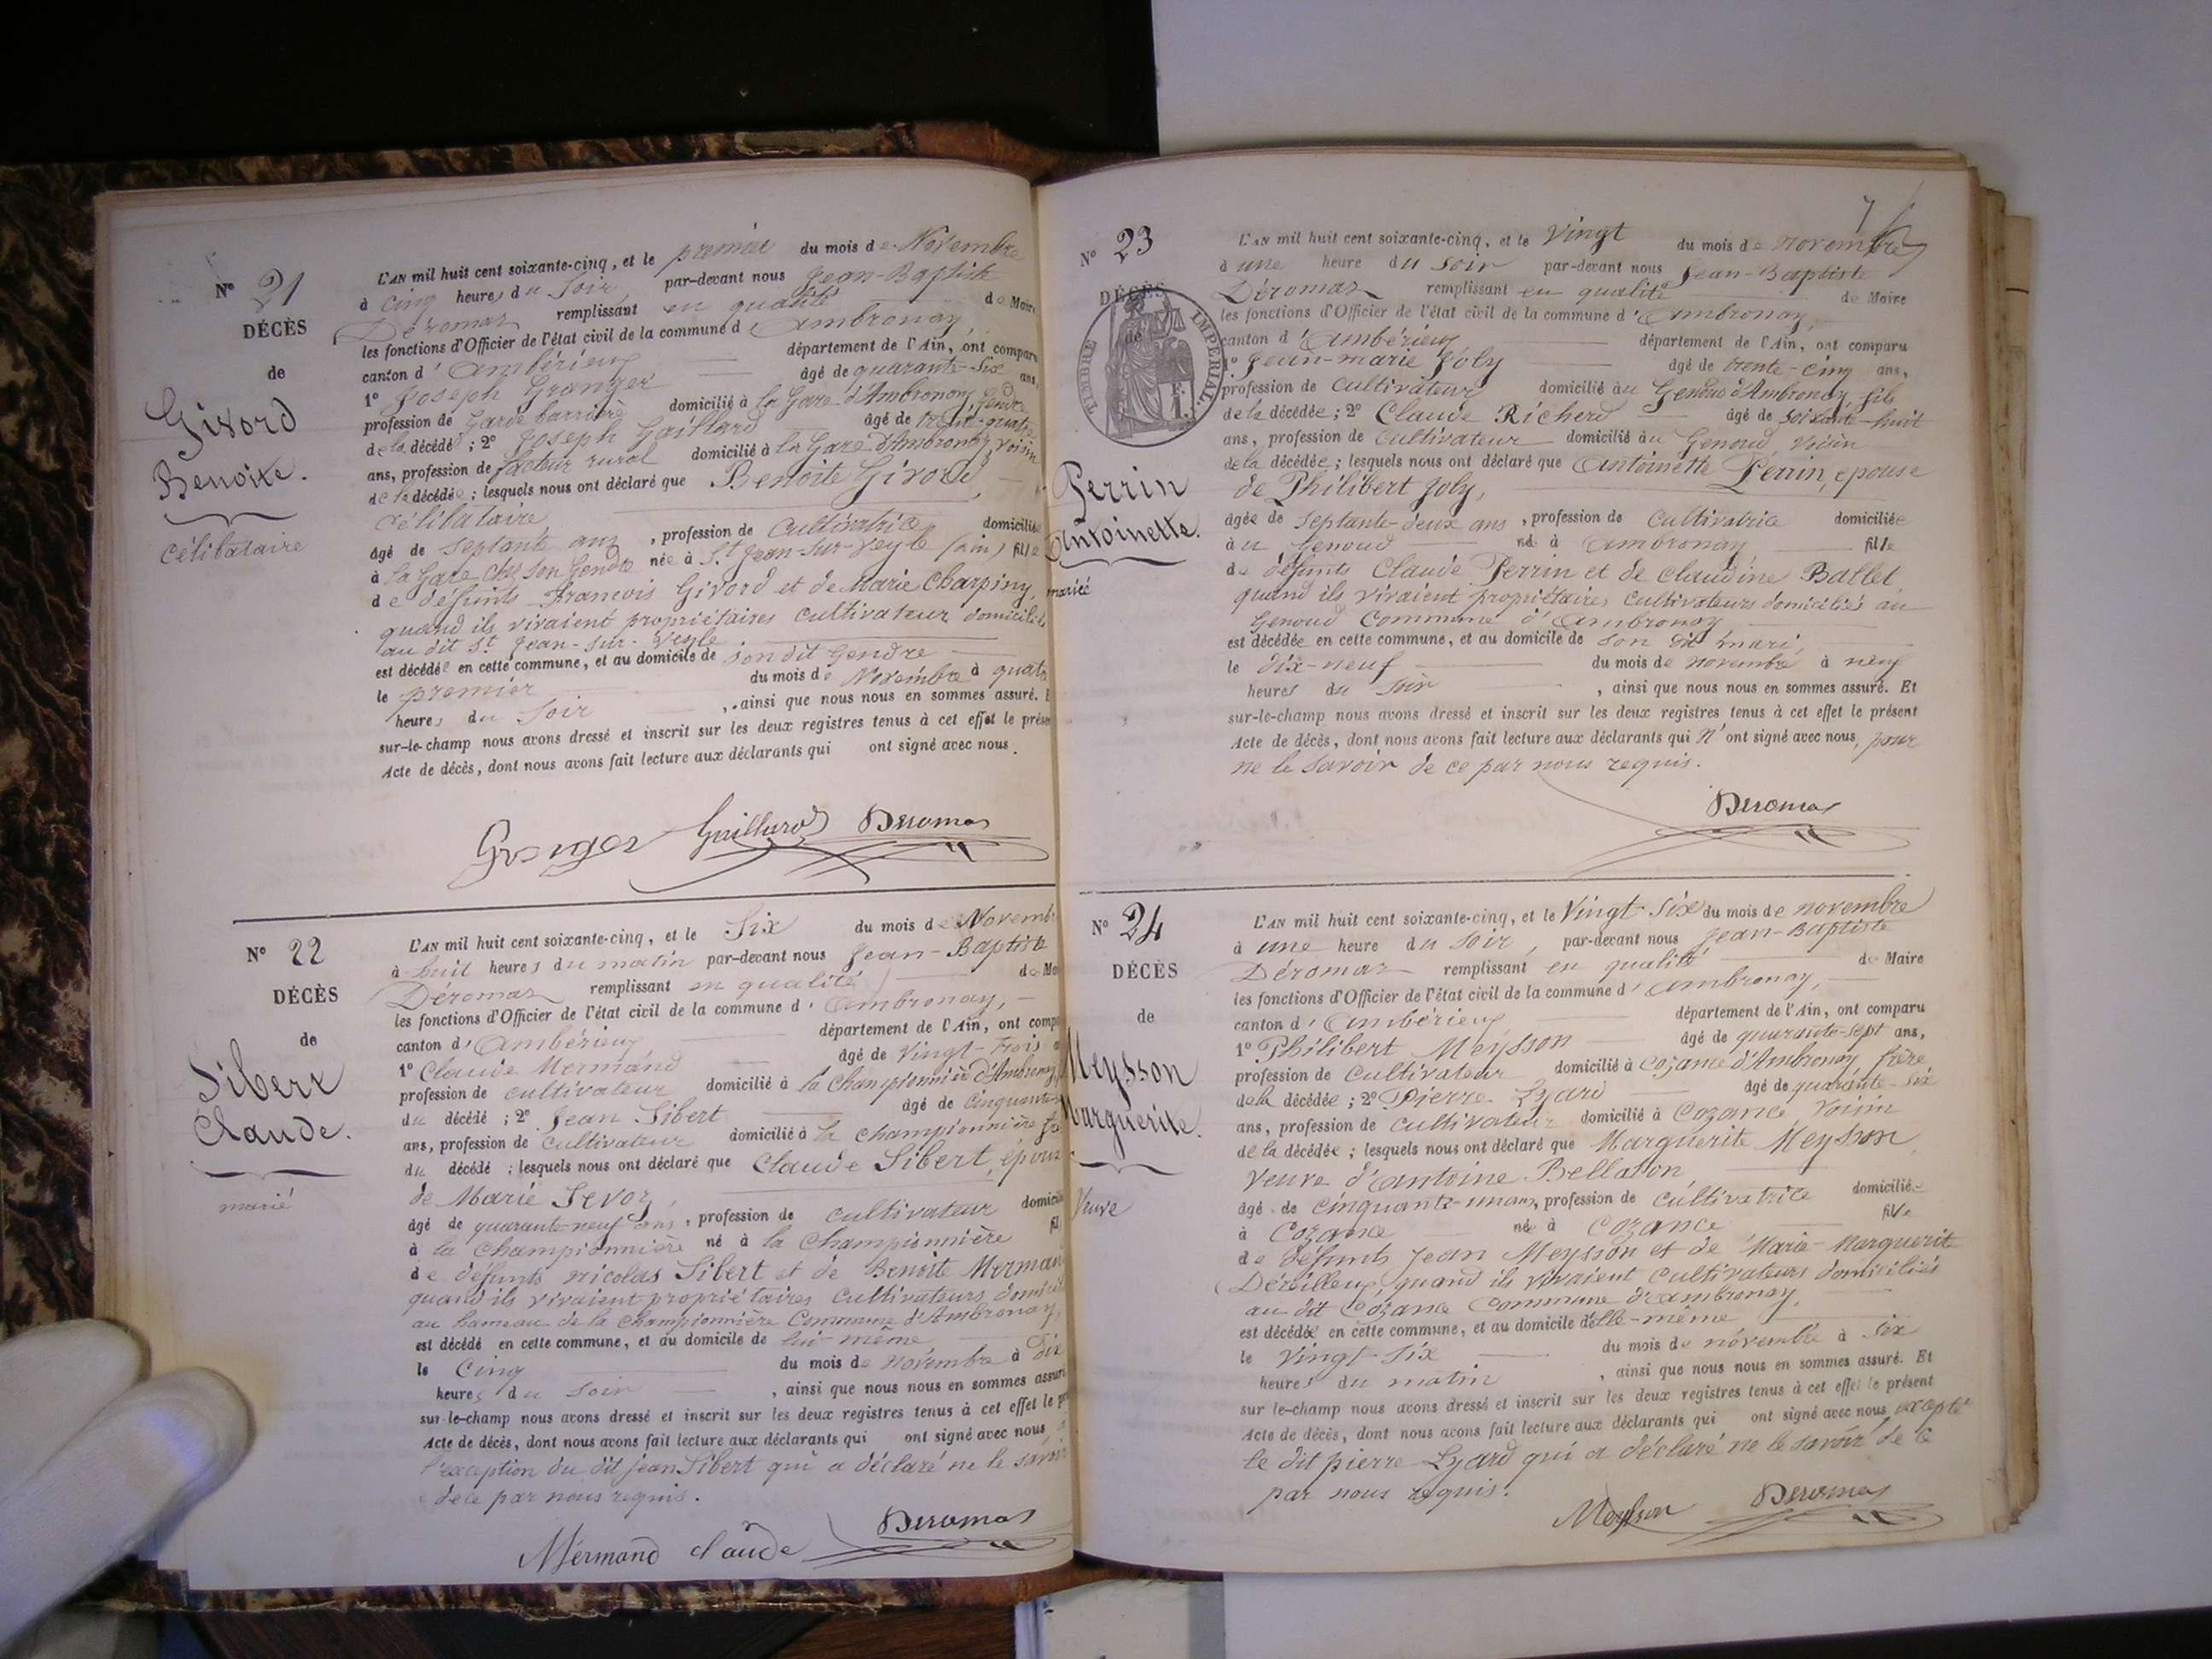 Nº 21
DÉCÈS
de
Givord
Benoite.
célibataire
L'AN mil huit cent soixante-cinq, et le premier du mois de Novembre
à Cinq heures du Soir par-devant nous Jean-Baptiste
Déromas remplissant en qualité de Maire
les fonctions d'Officier de l'état civil de la commune d'Ambronay,
canton d'Ambérieux département de l'Ain, ont comparu
1º Joseph Granger âgé de quarante-Six ans,
profession de Garde barrière domicilié à la Gare d'Ambronay, Gendre
de la décédé; 2º Joseph Gaillard âgé de trente-quatre
ans, profession de facteur rural domicilié à la Gare d'Ambronay, voisin
de la décédée; lesquels nous ont déclaré que Benoite Givord,
célibataire
âgé de septante ans, profession de Cultivatrice domiciliée
à la Gare chez son Gendre née à St Jean-sur-Veyle (ain) fille
de défunts François Givord et de Marie Charpiny,
quand ils vivaient propriétaires cultivateur domiciliés
au dit St Jean-sur-Veyle
est décédée en cette commune, et au domicile de son dit Gendre
le premier du mois de Novembre à quatre
heures du Soir, ainsi que nous nous en sommes assuré. E
sur-le-champ nous avons dressé et inscrit sur les deux registres tenus à cet effet le prése
Acte de décès, dont nous avons fait lecture aux déclarants qui ont signé avec nous.
Granger Gaillard Deromas
Nº 22
DÉCÈS
de
Sibert
Claude.
marié
L'AN mil huit cent soixante-cinq, et le Six du mois de Novemb
à huit heures du matin par-devant nous Jean-Baptiste
Déromas remplissant en qualité de Ma
les fonctions d'Officier de l'état civil de la commune d'Ambronay,
canton d'Ambérieux département de l'Ain, ont comp
1º Claude Mermand âgé de vingt-trois a
profession de cultivateur domicilié à la Championnière d'Ambronay,
du décédé; 2º Jean Sibert âgé de Cinquante
ans, profession de Cultivateur domicilié à la championnière frè
du décédé; lesquels nous ont déclaré que Claude Sibert, époux
de Marie Sevoz,
âgé de quarante-neuf ans, profession de cultivateur domicili
à la Championnière né à la Championnière fil
de défunts nicolas Sibert et de Benoite Merman
quand ils vivaient propriétaires Cultivateurs domicil
au hameau de la Championnière Commune d'Ambronay,
est décédé en cette commune, et au domicile de lui-même
le Cinq du mois de novembre à Dix
heures du Soir, ainsi que nous nous en sommes assuré
sur-le-champ nous avons dressé et inscrit sur les deux registres tenus à cet effet le pr
Acte de décès, dont nous avons fait lecture aux déclarants qui ont signé avec nous,
l'exception du dit jean Sibert qui a déclaré ne le savoir
de ce par nous requis.
Mérmand claude Deromas
7
Nº 23
DÉCÈS
de
TIMBRE IMPERIAL
1 F.
Perrin
Antoinette.
mariée
L'AN mil huit cent soixante-cinq, et le Vingt du mois de novembre
à une heure du Soir par-devant nous Jean-Baptiste
Déromas remplissant en qualité de Maire
les fonctions d'Officier de l'état civil de la commune d'Ambronay,
canton d'Ambérieux département de l'Ain, ont comparu
1º Jean-marie Joly âgé de trente-cinq ans,
profession de cultivateur domicilié au Genoud d'Ambronay, fils
de la décédée; 2º Claude Richerd âgé de soixante-huit
ans, profession de cultivateur domicilié au Genoud voisin
de la décédée; lesquels nous ont déclaré que Antoinette Perrin, épouse
de Philibert Joly,
âgée de septante-deux ans, profession de Cultivatrice domiciliée
à u Genoud né à Ambronay fille
de défunts Claude Perrin et de claudine Ballet
quand ils vivaient propriétaires Cultivateurs domiciliés au
Genoud Commune d'Ambronay
est décédée en cette commune, et au domicile de son dit mari,
le dix-neuf du mois de novembre à neuf
heures du Soir, ainsi que nous nous en sommes assuré. Et
sur-le-champ nous avons dressé et inscrit sur les deux registres tenus à cet effet le présent
Acte de décès, dont nous avons fait lecture aux déclarants qui n'ont signé avec nous, pour
ne le savoir de ce par nous requis.
Deromas
Nº 24
DÉCÈS
de
Meysson
Marguerite.
Veuve
L'AN mil huit cent soixante-cinq, et le Vingt-Six du mois de novembre
à une heure du soir, par-devant nous Jean-Baptiste
Déromas remplissant en qualité de Maire
les fonctions d'Officier de l'état civil de la commune d'Ambronay,
canton d'Ambérieux département de l'Ain, ont comparu
1º Philibert Meysson âgé de quarante-sept ans,
profession de Cultivateur domicilié à Cozance d'Ambronay frère
de la décédée; 2º Pierre Lyard âgé de quarante-six
ans, profession de cultivateur domicilié à Cozance, voisin
de la décédée; lesquels nous ont déclaré que Marguerite Meysson
Veuve d'antoine Bellaton
âgé de cinquante-un ans, profession de cultivatrice domiciliée
à Cozance née à Cozance fille
de défunts Jean Meysson et de Marie-Marguerit
quand ils vivaient cultivateurs domiciliés
au dit Cozance Commune d'Ambronay,
est décédée en cette commune, et au domicile d'elle-même
le Vingt-Six du mois de novembre à six
heures du matin, ainsi que nous nous en sommes assuré. Et
sur le-champ nous avons dressé et inscrit sur les deux registres tenus à cet effet le présent
Acte de décès, dont nous avons fait lecture aux déclarants qui ont signé avec nous excepté
le dit pierre Lyard qui a déclaré ne le savoir de ce
par nous requis.
Meysson Deromas